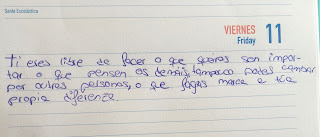 Santa Escolástica
VIERNES
Friday 11
Ti eres libre de facer o que queiras sen impor-
tar o que pensen os demais, tampouco podes cambiar
por outras personas, o que fagas marca a túa
propia diferenza.